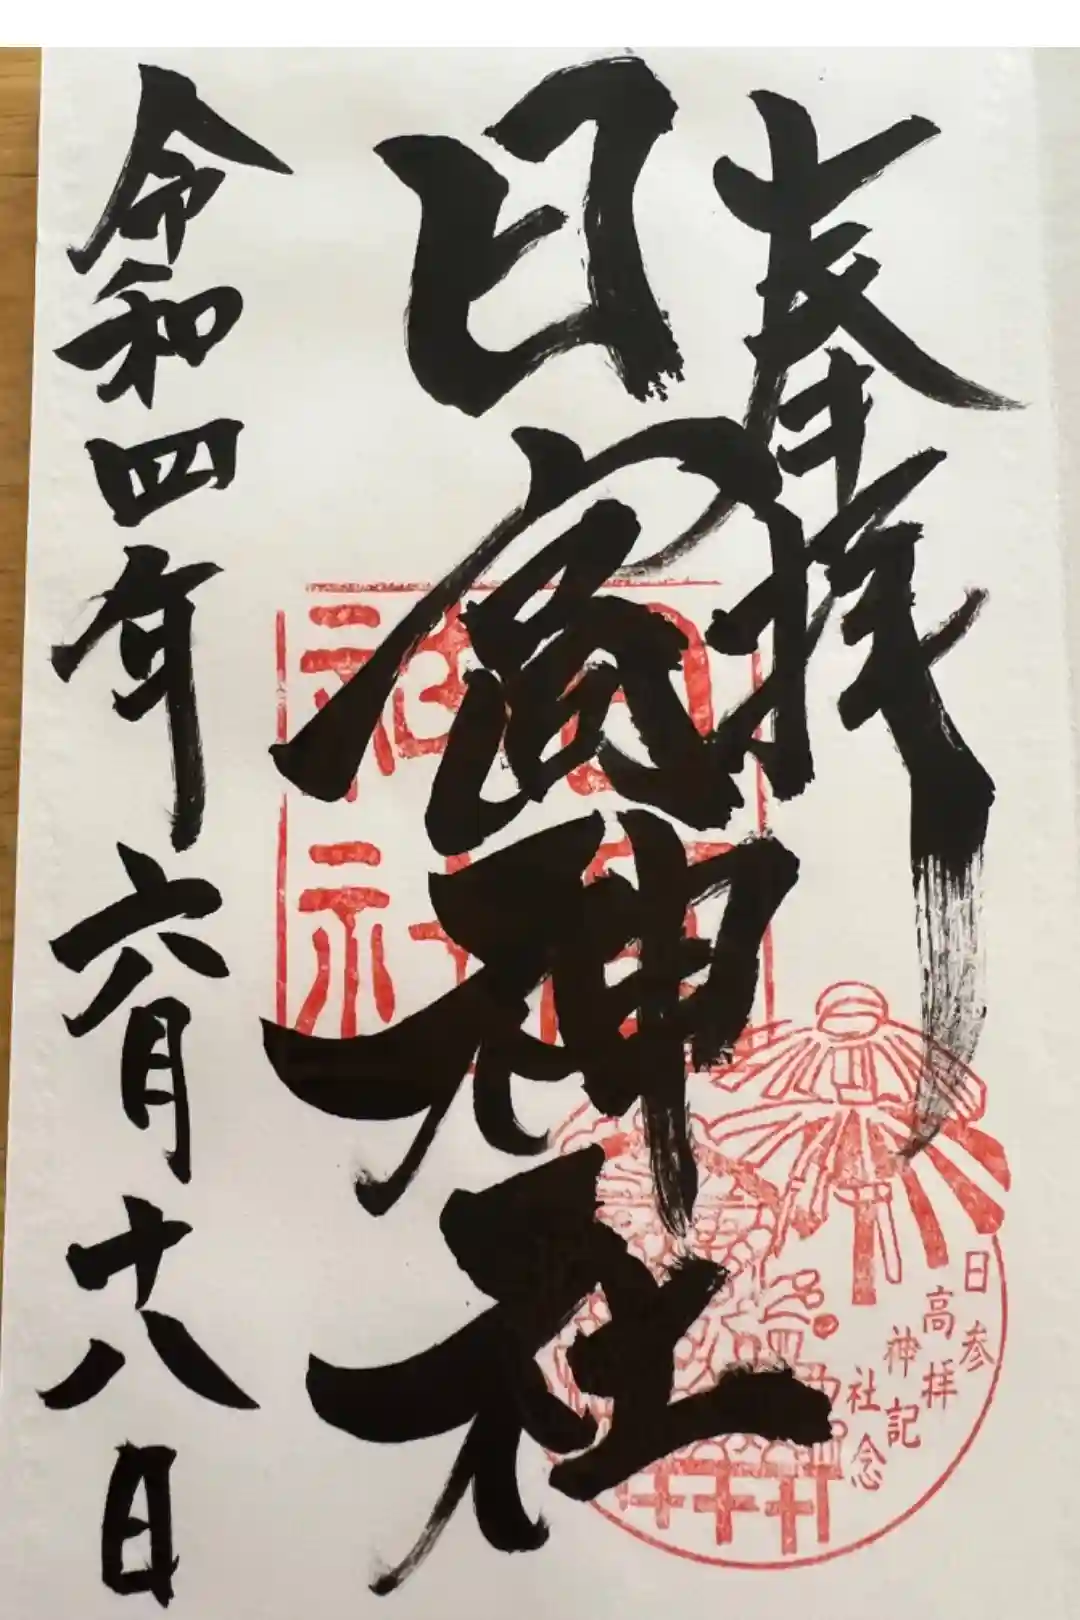 奉拝
日高神社
令和四年六月十八日
日高神社
参拝記念